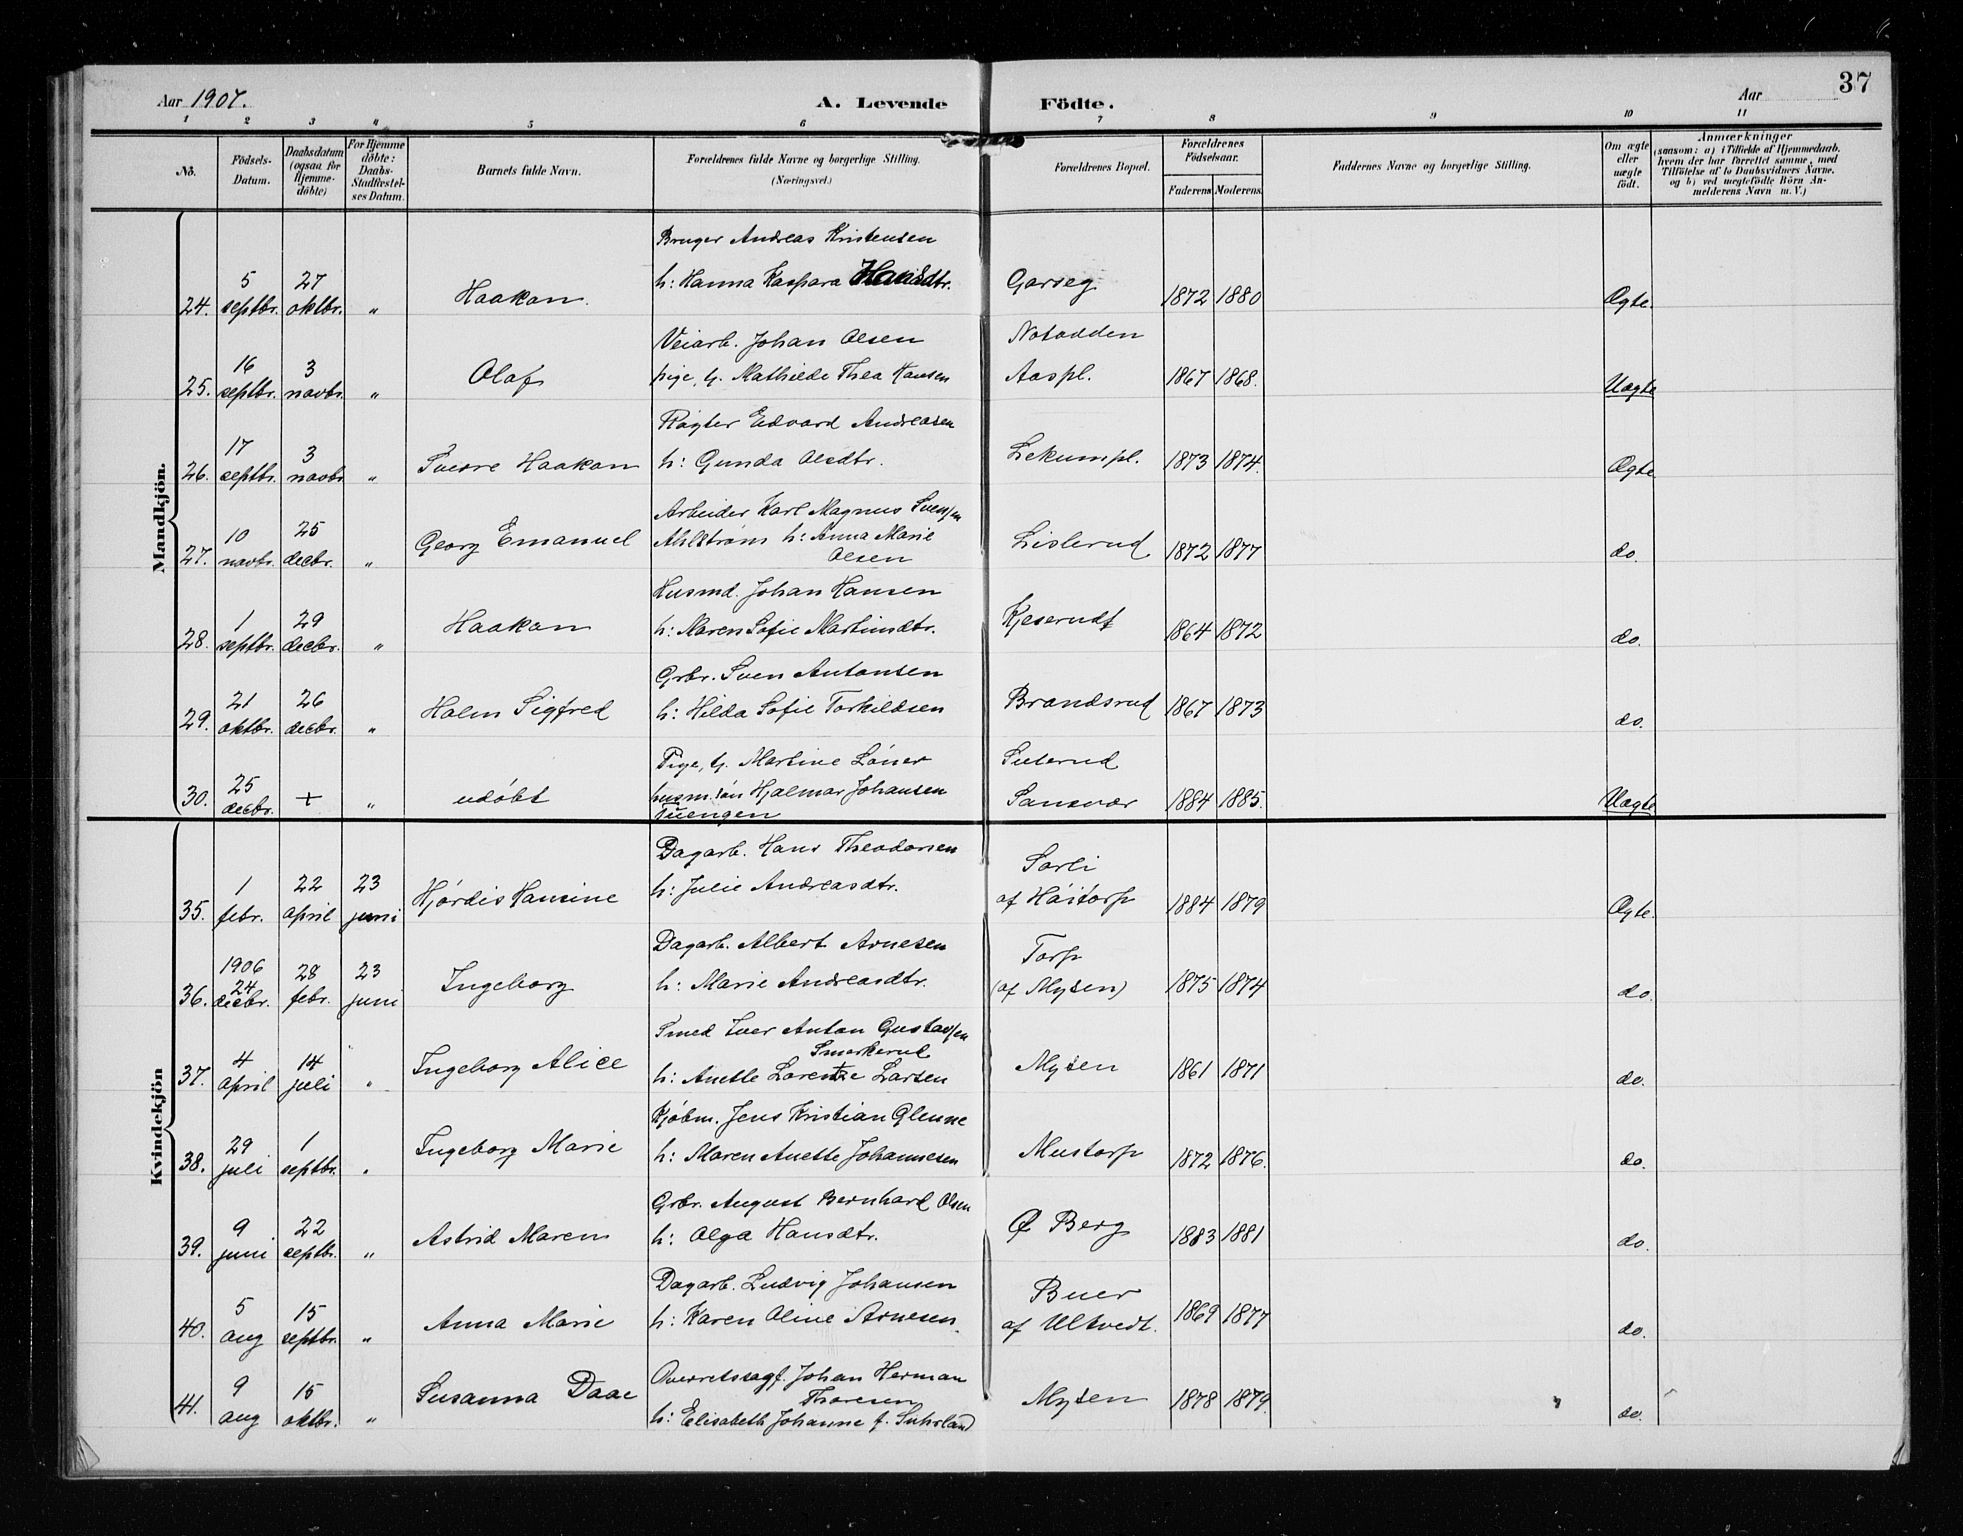 37
Aar 1907.
A. Levende Födte.
Aar
1 2 3 4 5 6 7 8 9 10 11
No.
Födsels-Datum.
Daabsdatum (ogsaa for Hjemmedöbte)
For Hjemmedöbte: Daabs-Stadfæstelses Datum.
Barnets fulde Navn.
Forældrenes fulde Navne og borgerlige Stilling. (Næringsvei.)
Forældrenes Bopæl.
Forældrenes Födselsaar.
Faderens Moderens.
Faddernes Navne og borgerlige Stilling.
Om ægte eller uægte födt.
Anmærkninger
(saasom: a) i Tilfælde af Hjemmedaab, hvem der har forrettet samme, med Tilföielse af to Daabsvidners Navne, og b) ved uægtefödte Börn Anmelderens Navn m. V.)
Mandkjön.
Bruger Andreas Kristensen
24. 5 septbr. 27 oktbr. " Haakon. h: Hanna Kaspara Hansdtr. Garseg 1872 1880 Ægte.
Veiarb. Johan Olsen Notodden
25. 16 septbr. 3 novbr. " Olaf pige, G. Mathilde Thea Hansen Aaspl. 1867 1868. Uægte
Røgter Edvard Andreasen
26. 17 septbr. 3 novbr. " Sverre Haakon h: Gunda Olsdtr. Lekumpl. 1873 1874. Ægte
Arbeider Karl Magnus Svensen
27. 10 novbr. 25 decbr. " Georg Emanuel Ahlstrøm h: Anna Marie Olsen Lislerud 1872 1877 do.
Husmd. Johan Hansen
28. 1 septbr. 29 decbr. " Haakon h: Maren Sofie Martinsdtr. Kjeserud 1864 1872 do.
Grbr. Sven Antonsen
29. 21 oktbr. 26 decbr. " Holm Sigfred h: Hilda Sofie Torkildsen Brandsrud 1867 1873 do.
Pige, G. Martine Suterud
30. 25 decbr. + " udøbt husm. søn Hjalmar Johansen Tuengen Sansvær 1884 1885. Uægte
Kvindekjön
Dagarb. Hans Theodorsen
35. 1 febr. 22 april 23 juni Hjørdis Hansine h: Julie Andreasdtr. Sorli af Höitorp 1884 1879 Ægte.
Dagarb. Albert Arnesen
36. 1906 24 decbr. 28 febr. 23 juni Ingeborg h: Marie Andreasdtr. Torp (af Mysen) 1875 1874 do.
Smed Iver Anton Gustavsen Smorkerud
37. 4 april 14 juli " Ingeborg Alice h: Anette Lorentze Larsen Mysen 1861 1871 do.
Kjøbm. Jens Kristian Glenne
38. 29 juli 1 septbr. " Ingeborg Marie h: Maren Anette Johannesen Mustorp 1872 1876. do.
Grbr. August Bernhard Olsen
39. 9 juni 22 septbr. " Astrid Maren h: Olga Hansdtr. Ø Berg 1883 1881 do.
Dagarb. Ludvig Johansen
40. 5 aug 15 septbr. " Anna Marie h: Karen Oline Arnesen Buer af Ultvedt. 1869 1877 do.
Overretssagf. Johan Herman Thoresen
41. 9 aug 15 oktbr. " Susanna Daae h: Elisabeth Johanne f. Suhrland Mysen 1878 1879. do.